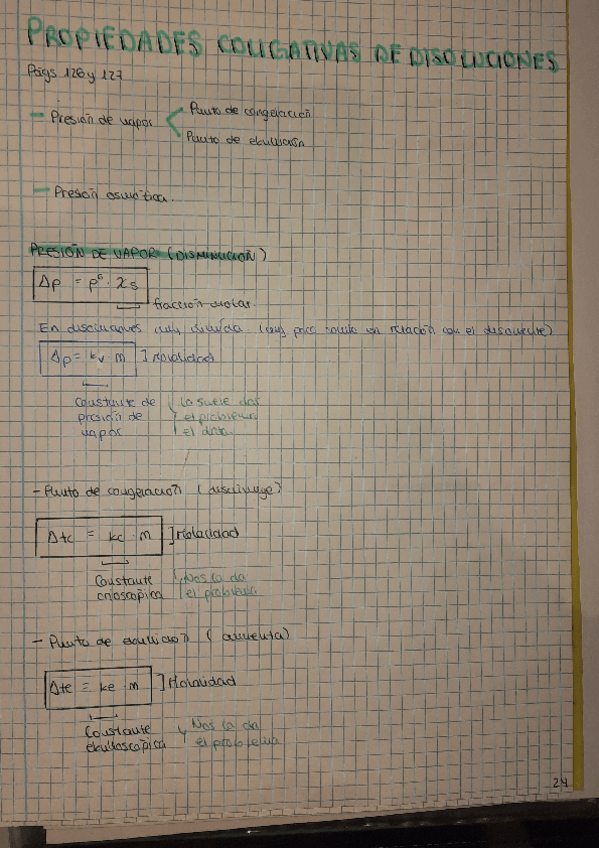 PROPIEDADES COLIGATIVAS DE DISOLUCIONES
Págs 126 y 127
- Presión de vapor < Punto de congelación
Punto de ebullición
- Presión osmótica.
PRESIÓN DE VAPOR (DISMINUCIÓN)
Δp = p° · χs
fracción molar.
En disoluciones muy diluida (muy poco soluto en relación con el disolvente)
Δp = kv · m ] Molalidad
Constante de presión de vapor
La suele dar el problema el dato.
- Punto de congelación (disminuye)
Δtc = kc · m ] Molalidad
Constante crioscópica
Nos la da el problema
- Punto de ebullición (aumenta)
Δte = ke · m ] Molalidad
Constante ebulloscópica
Nos la da el problema
24